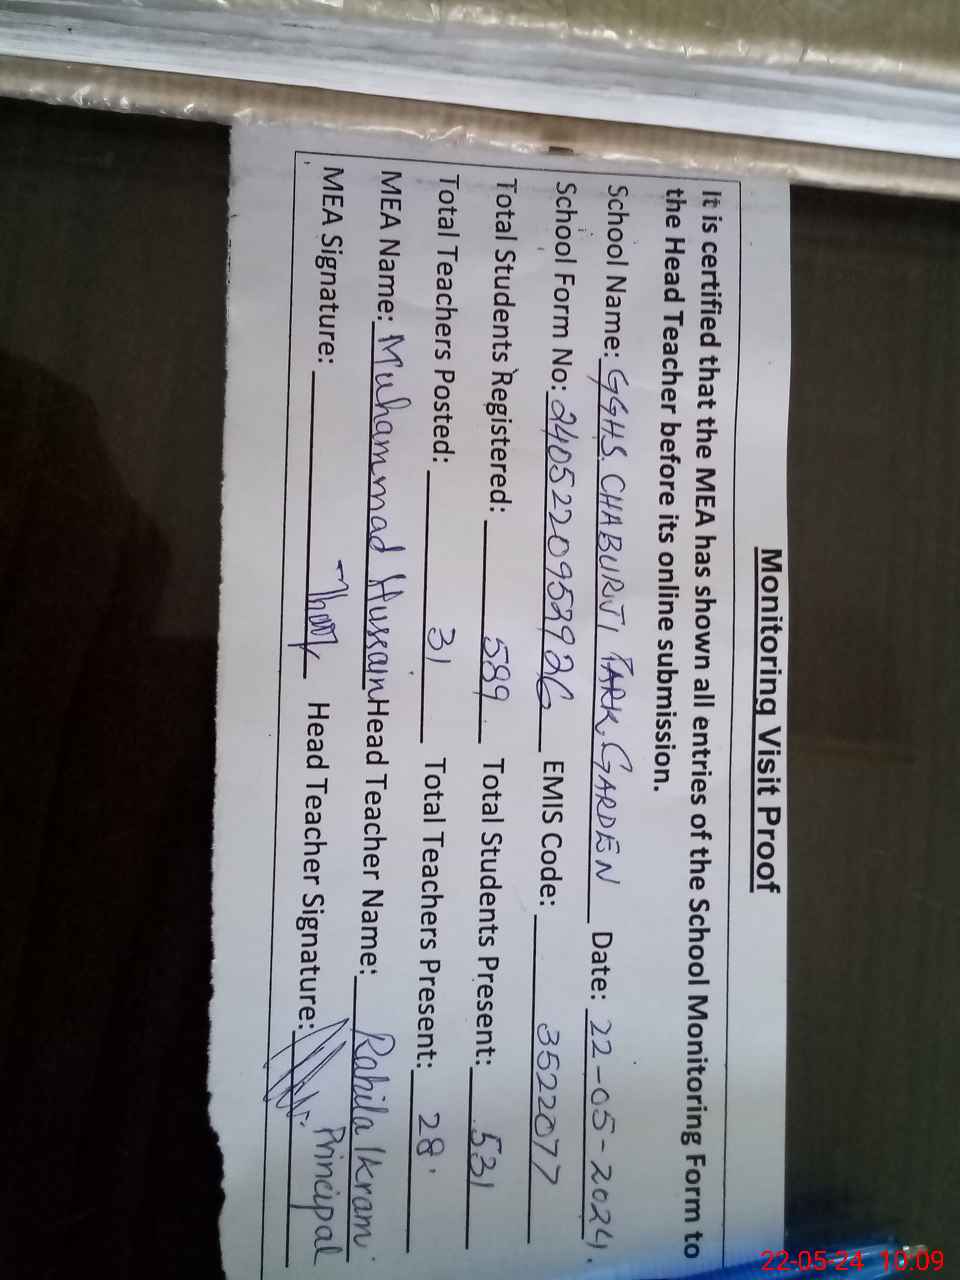 Monitoring Visit Proof
It is certified that the MEA has shown all entries of the School Monitoring Form to
the Head Teacher before its online submission.
School Name: GGHS. CHABURJI PARK, GARDEN Date: 22-05-2024.
School Form No: 24052209529926 EMIS Code: 3522077
Total Students Registered: 589 Total Students Present: 531
Total Teachers Posted: 31 Total Teachers Present: 28
MEA Name: Muhammad Hussain Head Teacher Name: Rahila Ikram
MEA Signature: Head Teacher Signature: Principal
22-05-24 10:09